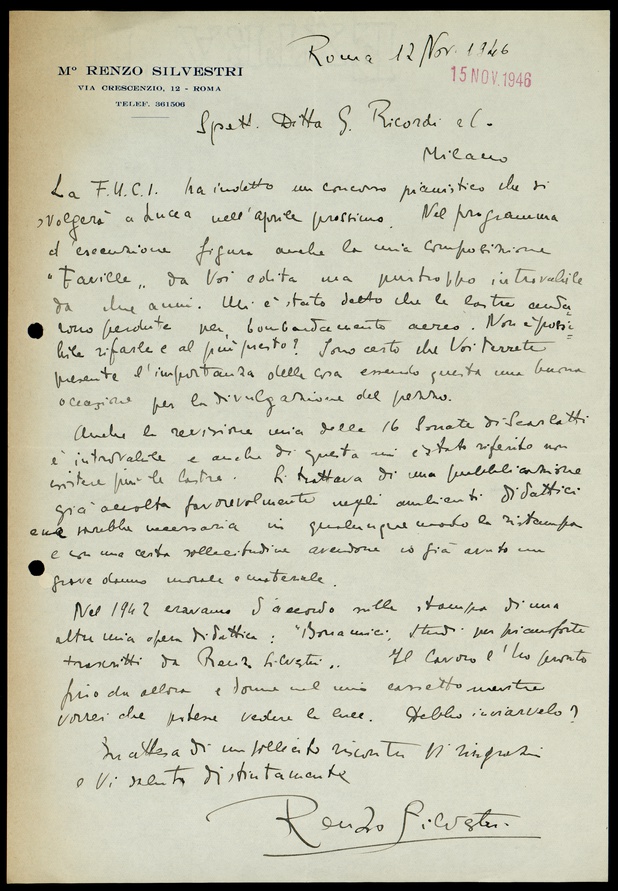 Roma 12 Nov. 1946
Mº RENZO SILVESTRI
VIA CRESCENZIO, 12 - ROMA
TELEF. 361506
15 NOV. 1946
Spett. Ditta G. Ricordi e C.
Milano
La F.U.C.I. ha indetto un concorso pianistico che si
svolgerà a Lucca nell'aprile prossimo. Nel programma
d'esecuzione figura anche la mia composizione
"Faville„ da Voi edita ma purtroppo introvabile
da due anni. Mi è stato detto che le lastre anda-
rono perdute per bombardamento aereo. Non è possi-
bile rifarle e al più presto? Sono certo che Voi terrete
presente l'importanza della cosa essendo questa una buona
occasione per la divulgazione del pezzo.
Anche la revisione mia delle 16 Sonate di Scarlatti
è introvabile e anche di questa mi è stato riferito non
esistere più le lastre. Si trattava di una pubblicazione
già accolta favorevolmente negli ambienti didattici
e ne sarebbe necessaria in qualunque modo la ristampa
e con una certa sollecitudine avendone io già avuto un
grave danno morale e materiale.
Nel 1942 eravamo d'accordo sulla stampa di una
altra mia opera didattica: "Bonamici, Studi per pianoforte
trascritti da Renzo Silvestri„. Il lavoro l'ho pronto
fino da allora e dorme nel mio cassetto mentre
vorrei che potesse vedere la luce. Debbo inviarvelo?
In attesa di un sollecito riscontro Vi ringrazio
e Vi saluto distintamente
Renzo Silvestri